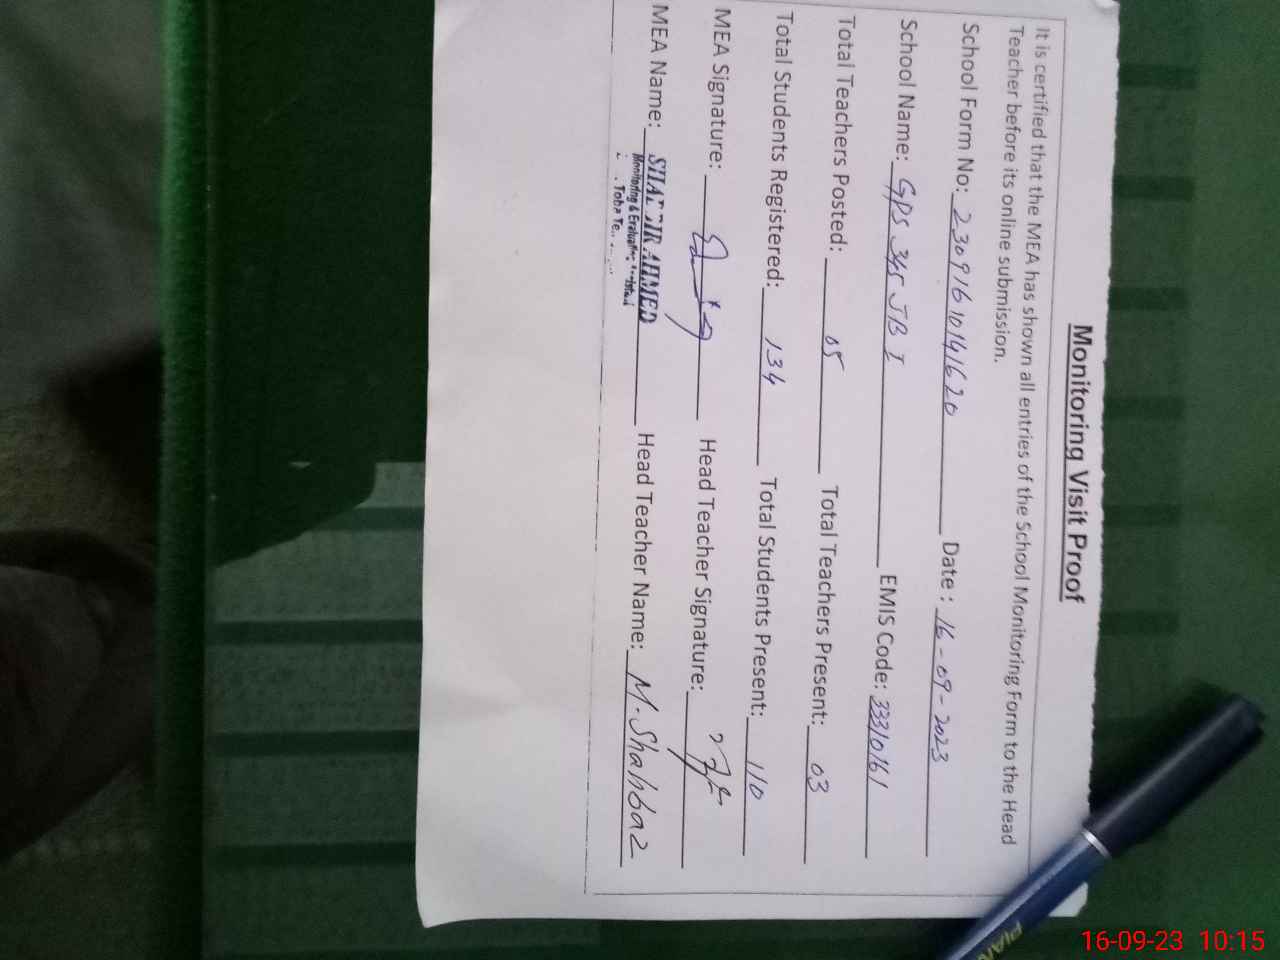 Monitoring Visit Proof
It is certified that the MEA has shown all entries of the School Monitoring Form to the Head
Teacher before its online submission.
School Form No: 23091610141620 Date : 16-09-2023
School Name: GPS 345 JB I EMIS Code: 33310161
Total Teachers Posted: 05 Total Teachers Present: 03
Total Students Registered: 134 Total Students Present: 110
MEA Signature: Head Teacher Signature:
MEA Name: AHMED Head Teacher Name: M. Shahbaz
Monitoring & Evaluation
Toba Te
PIAN
16-09-23 10:15